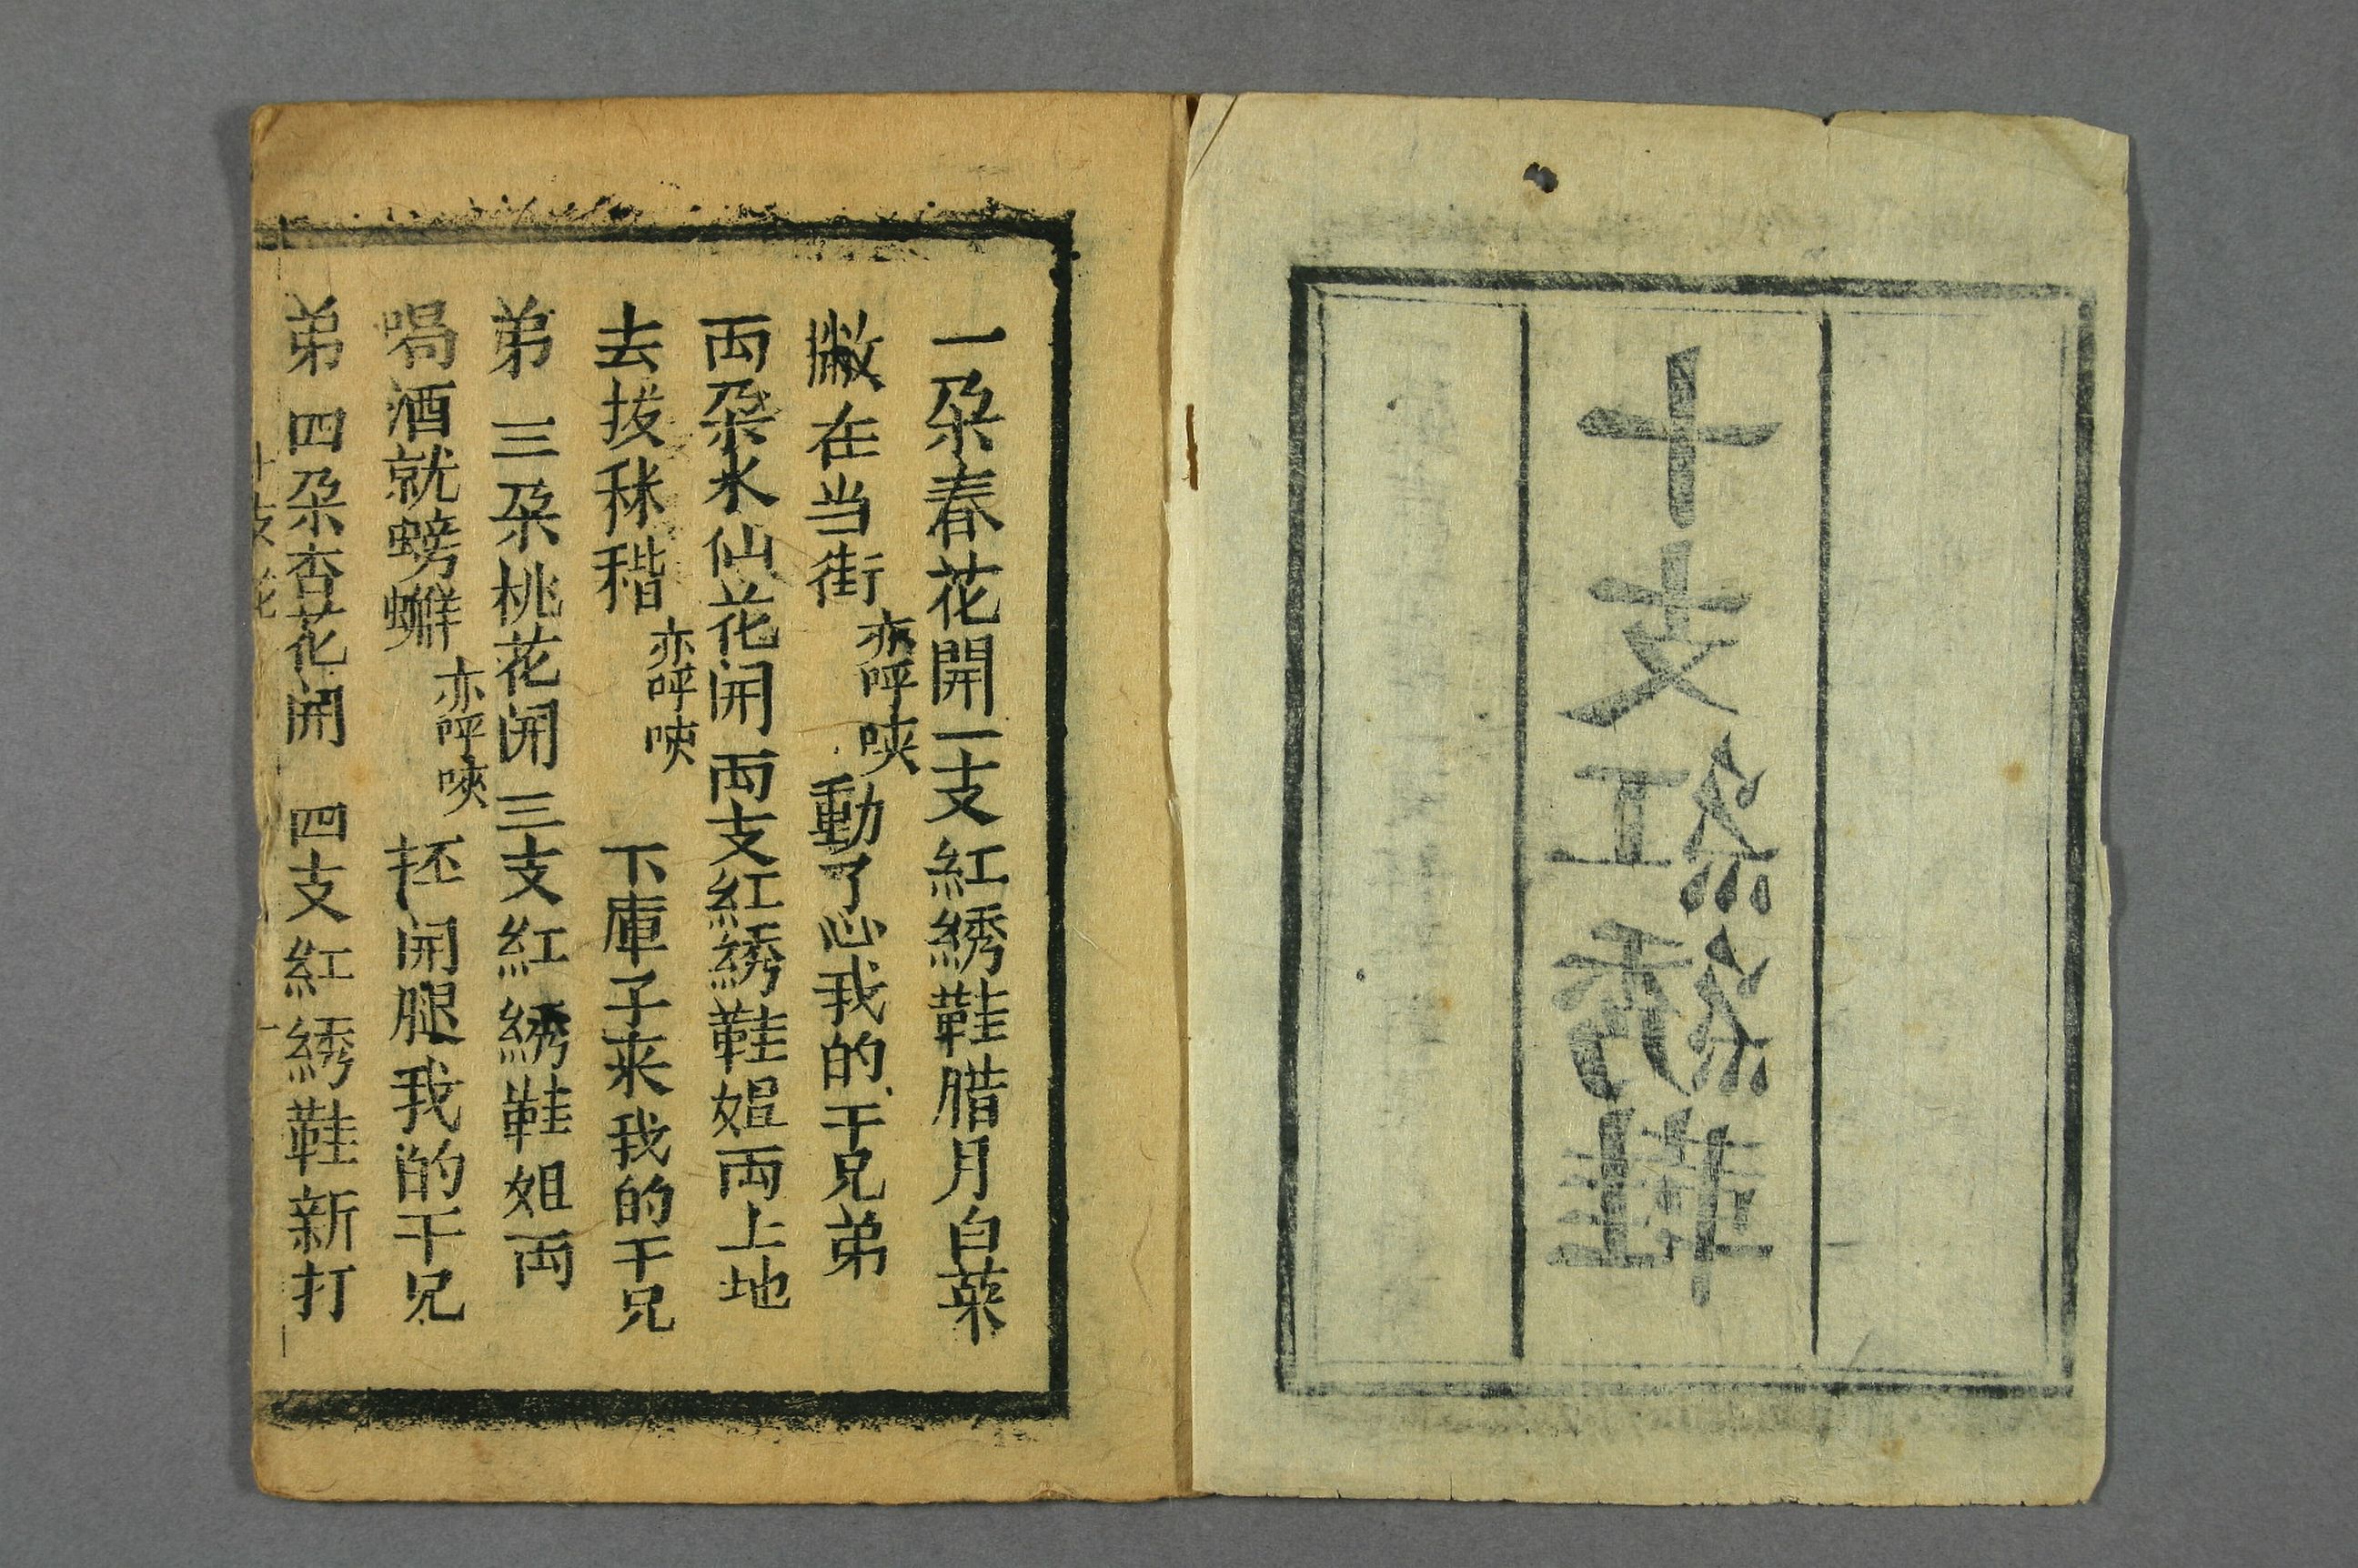 十支紅綉鞋
一朶春花開一支紅綉鞋腊月白菜
撇在当街亦呀呀唊動了心我的干兄弟
両朶水仙花闲両支紅綉鞋姐両上地
去拔秣稭亦呀呀唊下庫子来我的干兄
弟三朶桃花闲三支紅綉鞋姐両
喝酒就螃蠏亦呀呀唊抷闲腿我的干兄
弟四朶杏花闲四支紅綉鞋新打
十支花